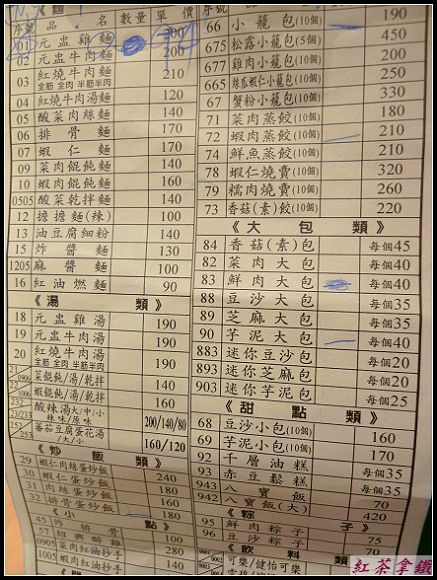 序號 品名 數量 單價
01 元盅雞麵 200
02 元盅牛肉麵 200
03 紅燒牛肉麵 210
全筋 全肉 半筋半肉
04 紅燒牛肉湯麵 120
05 酸菜肉絲麵 140
06 排骨麵 170
07 蝦仁麵 170
09 菜肉餛飩麵 140
10 蝦肉餛飩麵 160
0505 酸菜乾拌麵 140
12 擔擔麵(辣) 100
13 油豆腐細粉 140
15 炸醬麵 130
1205 麻醬麵 100
16 紅油燃麵 90
《湯類》
18 元盅雞湯 190
19 元盅牛肉湯 190
20 紅燒牛肉湯 190
全筋 全肉 半筋半肉
菜餛飩/湯/乾拌 140
蝦餛飩/湯/乾拌 160
酸辣湯大/中/小 200/140/80
辣味/原味
252 253 番茄豆腐蛋花湯 160/120
大/小
《炒飯類》
29 蝦仁肉絲蛋炒飯
30 蝦仁蛋炒飯 240
31 肉絲蛋炒飯 180
32 排骨蛋炒飯
45 炸排骨
0905 菜肉紅油抄手 140
1005 蝦肉紅油抄手 160
66 小籠包(10個) 190
675 松露小籠包(5個) 450
677 雞肉小籠包(10個) 200
665 絲瓜蝦仁小籠包(10個)
67 蟹粉小籠包(10個) 330
71 菜肉蒸餃(10個) 180
72 蝦肉蒸餃(10個) 210
74 鮮魚蒸餃(10個) 210
78 蝦仁燒賣(10個) 320
79 糯肉燒賣(10個) 260
73 香菇(素)餃(10個) 220
《大包類》
84 香菇(素)包 每個45
82 菜肉大包 每個40
83 鮮肉大包 每個40
88 豆沙大包 每個35
89 芝麻大包 每個35
90 芋泥大包 每個40
883 迷你豆沙包 每個20
893 迷你芝麻包 每個20
903 迷你芋泥包 每個25
《甜點類》
68 豆沙小包(10個) 160
69 芋泥小包(10個) 170
92 千層油糕 每個35
93 赤豆鬆糕 每個35
943 八寶飯 70
942 八寶飯(大) 420
《粽子》
95 鮮肉粽子 75
96 豆沙粽子 70
《飲料類》
可樂/健怡可樂
紅茶拿鐵